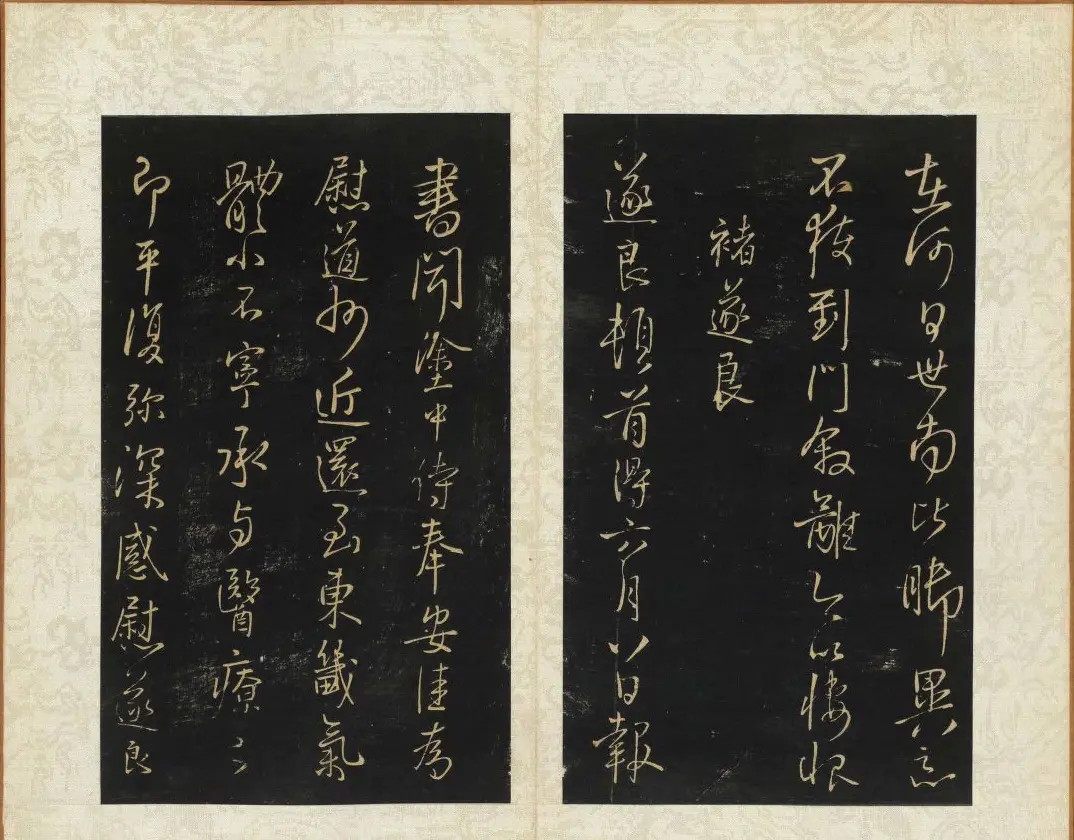 在何日世南比脚異惡
不獲到門叙離以悽恨
褚遂良
遂良頓首得六月八日報
書聞塗中侍奉安佳為
慰道近還至東畿氣
體小不寧承与醫療〻
即平復弥深感慰遂良